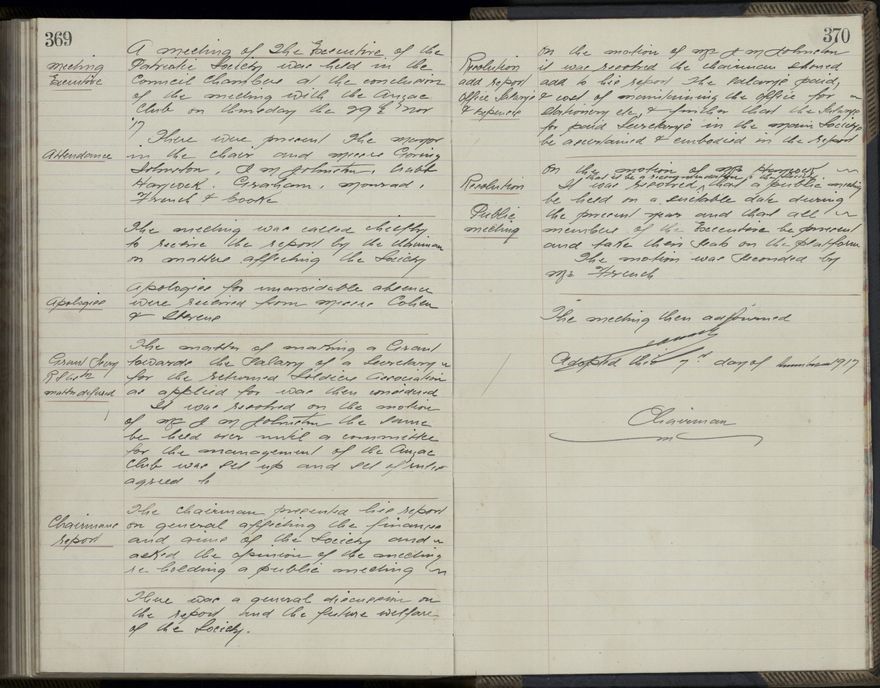 369
Meeting
Executive
A meeting of The Executive of the
Patriotic Society was held in the
Council Chambers at the conclusion
of the meeting with the Anzac
Club on Thursday the 29th Nov
17
Attendance
There were present The Mayor
in the chair and Messrs
Johnston, J M Johnston,
Haycock, Graham, Monrad,
French & Cooke
The meeting was called chiefly
to receive the report by the Chairman
on matters affecting the Society
Apologies
Apologies for unavoidable absence
were received from Messrs Cohen
& Stevens
Grant Secry
R S Assn
matter deferred
The matter of making a Grant
towards the Salary of a Secretary
for the returned Soldiers Association
as applied for was then considered
It was resolved on the motion
of Mr J M Johnston the same
be held over until a committee
for the management of the Anzac
Club was set up and set of rules
agreed to
Chairmans
report
The Chairman presented his report
on general affecting the finances
and aims of the Society and
asked the opinion of the meeting
re holding a public meeting
There was a general discussion on
the report and the future welfare
of the Society.
370
Resolution
add report
office Salarys
& expenses
On the motion of Mr J M Johnston
it was resolved the chairman should
add to his report the salarys paid,
& cost of maintaining the office for
Stationery etc, & further that the Salarys
for paid Secretarys in the main Societys
be ascertained & embodied in the report
Resolution
Public
meeting
On the motion of Mr Haycock
that it be a recommendation to the Society
It was resolved that a public meeting
be held on a suitable date during
the present year and that all
members of the Executive be present
and take their seats on the platform
The motion was seconded by
Mr French
The meeting then adjourned
Adopted this 7th day of 1917
Chairman